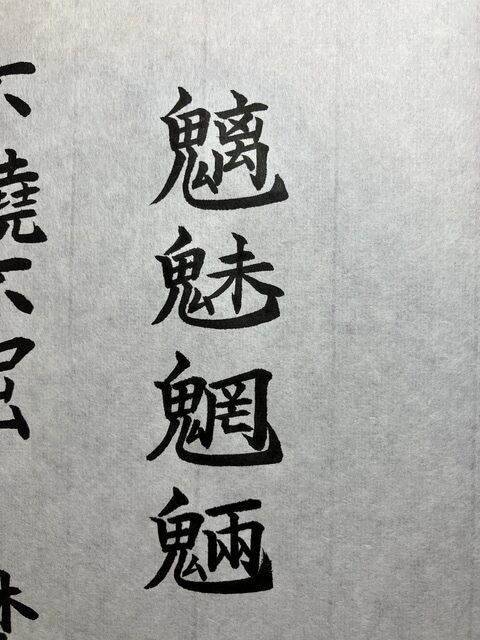 魑魅魍魎
不撓不屈